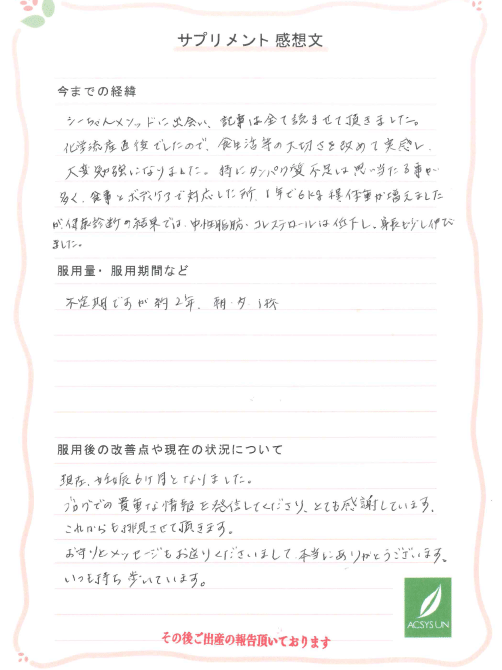 サプリメント 感想文
今までの経緯
シーちゃんメソッドに出会い、記事は全て読ませて頂きました。
化学流産直後でしたので、食生活等の大切さを改めて実感し、
大変勉強になりました。特にタンパク質不足は思い当たる事が
多く、食事とボディケアで対応した所、1年で6kg程体重が増えました
が健康診断の結果では、中性脂肪・コレステロールは低下し、身長も少し伸び
ました。
服用量・服用期間など
不定期ですが約2年、朝・夕 1秒
服用後の改善点や現在の状況について
現在、妊娠6ヶ月となりました。
ブログでの貴重な情報を発信してくださり、とても感謝しています。
これからも拝見させて頂きます。
お守りとメッセージもお送りくださいまして、本当にありがとうございます。
いつも持ち歩いています。
ACSYS UN
その後ご出産の報告頂いております